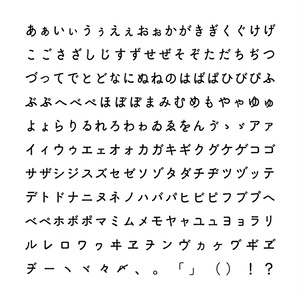 あぁいぃうぅえぇおぉかがきぎくぐけげ
こごさざしじすずせぜそぞただちぢつ
づってでとどなにぬねのはばぱひびぴふ
ぶぷへべぺほぼぽまみむめもやゃゆゅ
よょらりるれろわゎゐゑをんゔゝゞアァ
イィウゥエェオォカガキギクグケゲコゴ
サザシジスズセゼソゾタダチヂツヅッテ
デトドナニヌネノハバパヒビピフブプヘ
ベペホボポマミムメモヤャユュヨョラリ
ルレロワヮヰヱヲンヴヵヶヷヸヹ
ヺーヽヾ々〆、。「」（）！？